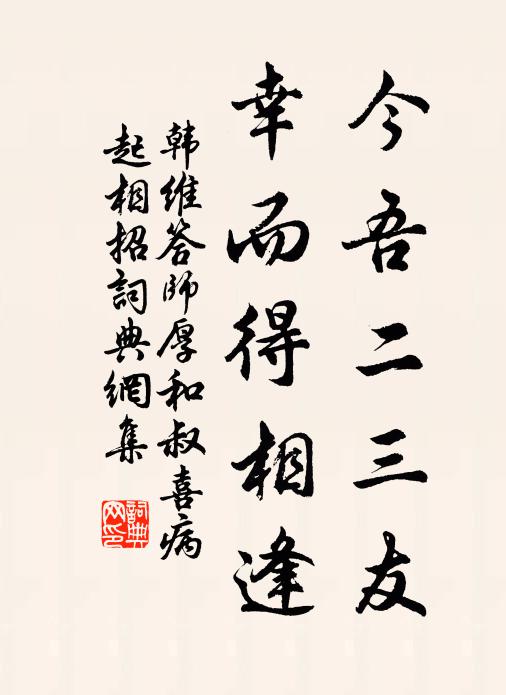 今吾二三友
幸而得相逢
韩维答師厚和叔喜病
起相招詞典網集
詞典網印